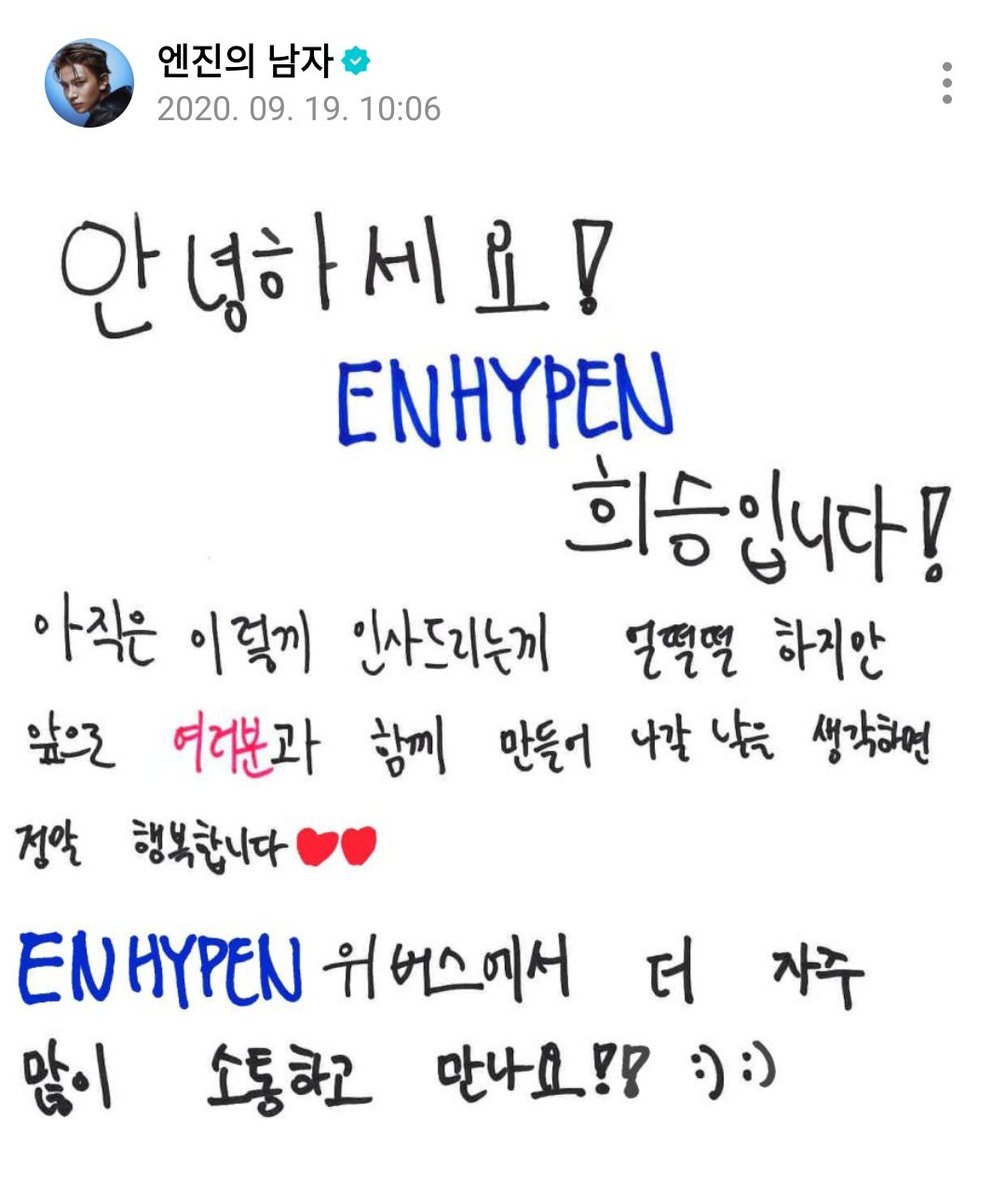 엔진의 남자
2020. 09. 19. 10:06
안녕하세요!
ENHYPEN
희승입니다!
아직은 이렇게 인사드리는게 얼떨떨 하지만
앞으로 여러분과 함께 만들어 나갈 날을 생각하면
정말 행복합니다♥♥
ENHYPEN 위버스에서 더 자주
많이 소통하고 만나요!! :) :)